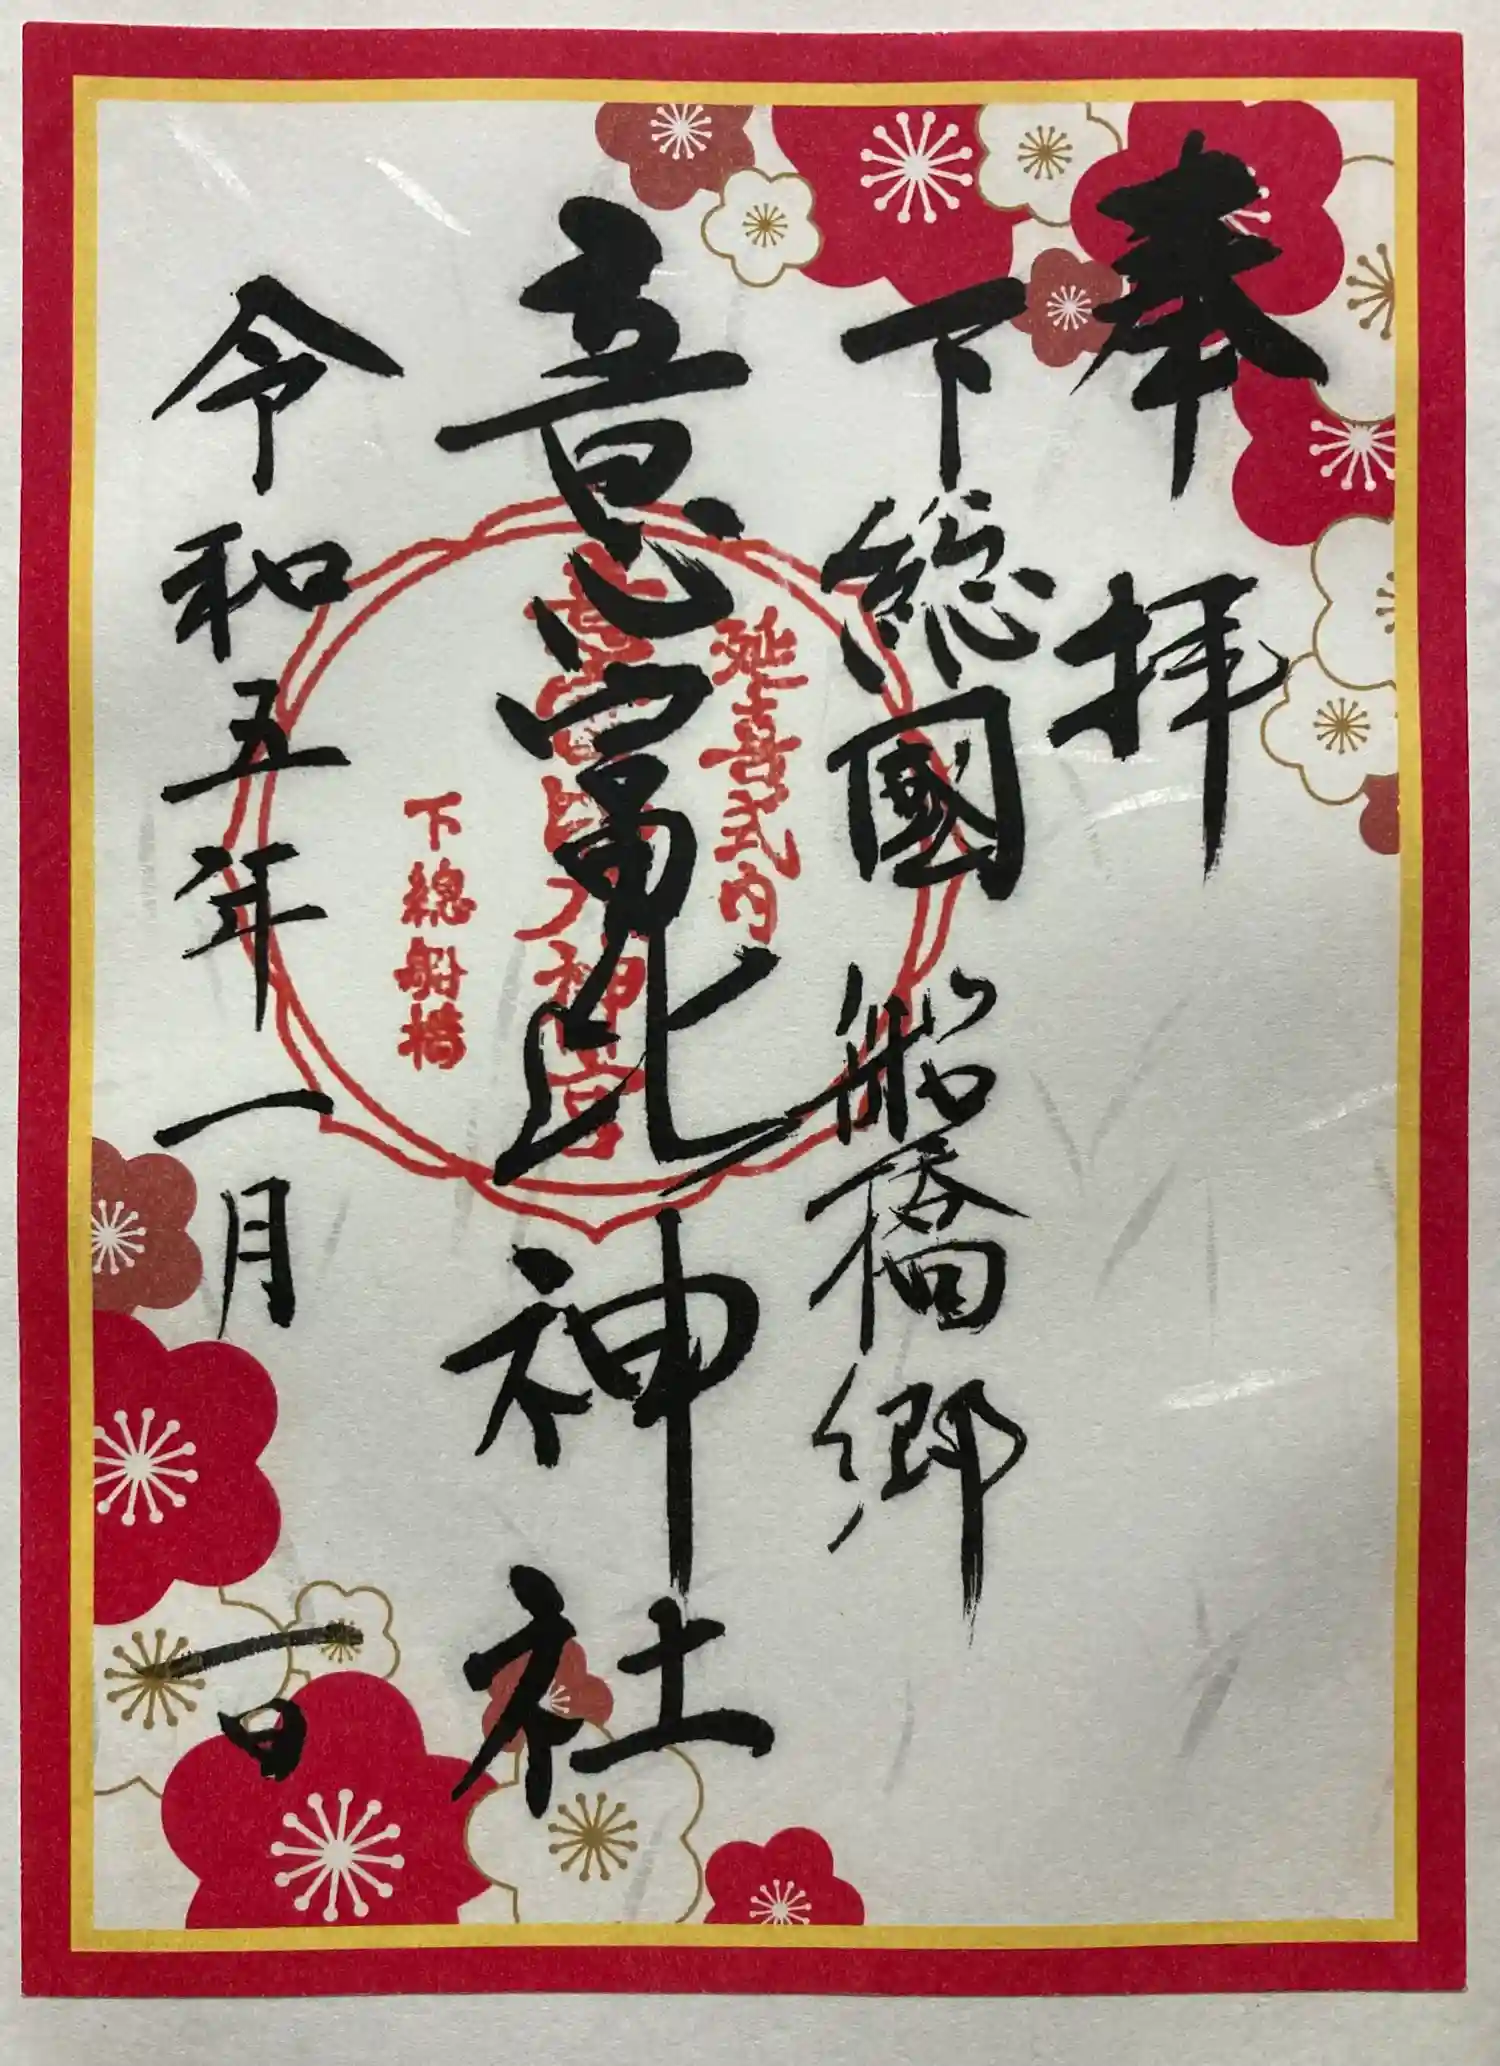 奉拝
下総國船橋郷
意富比神社
令和五年一月一日
延喜式内
意富比大神宮
下總船橋